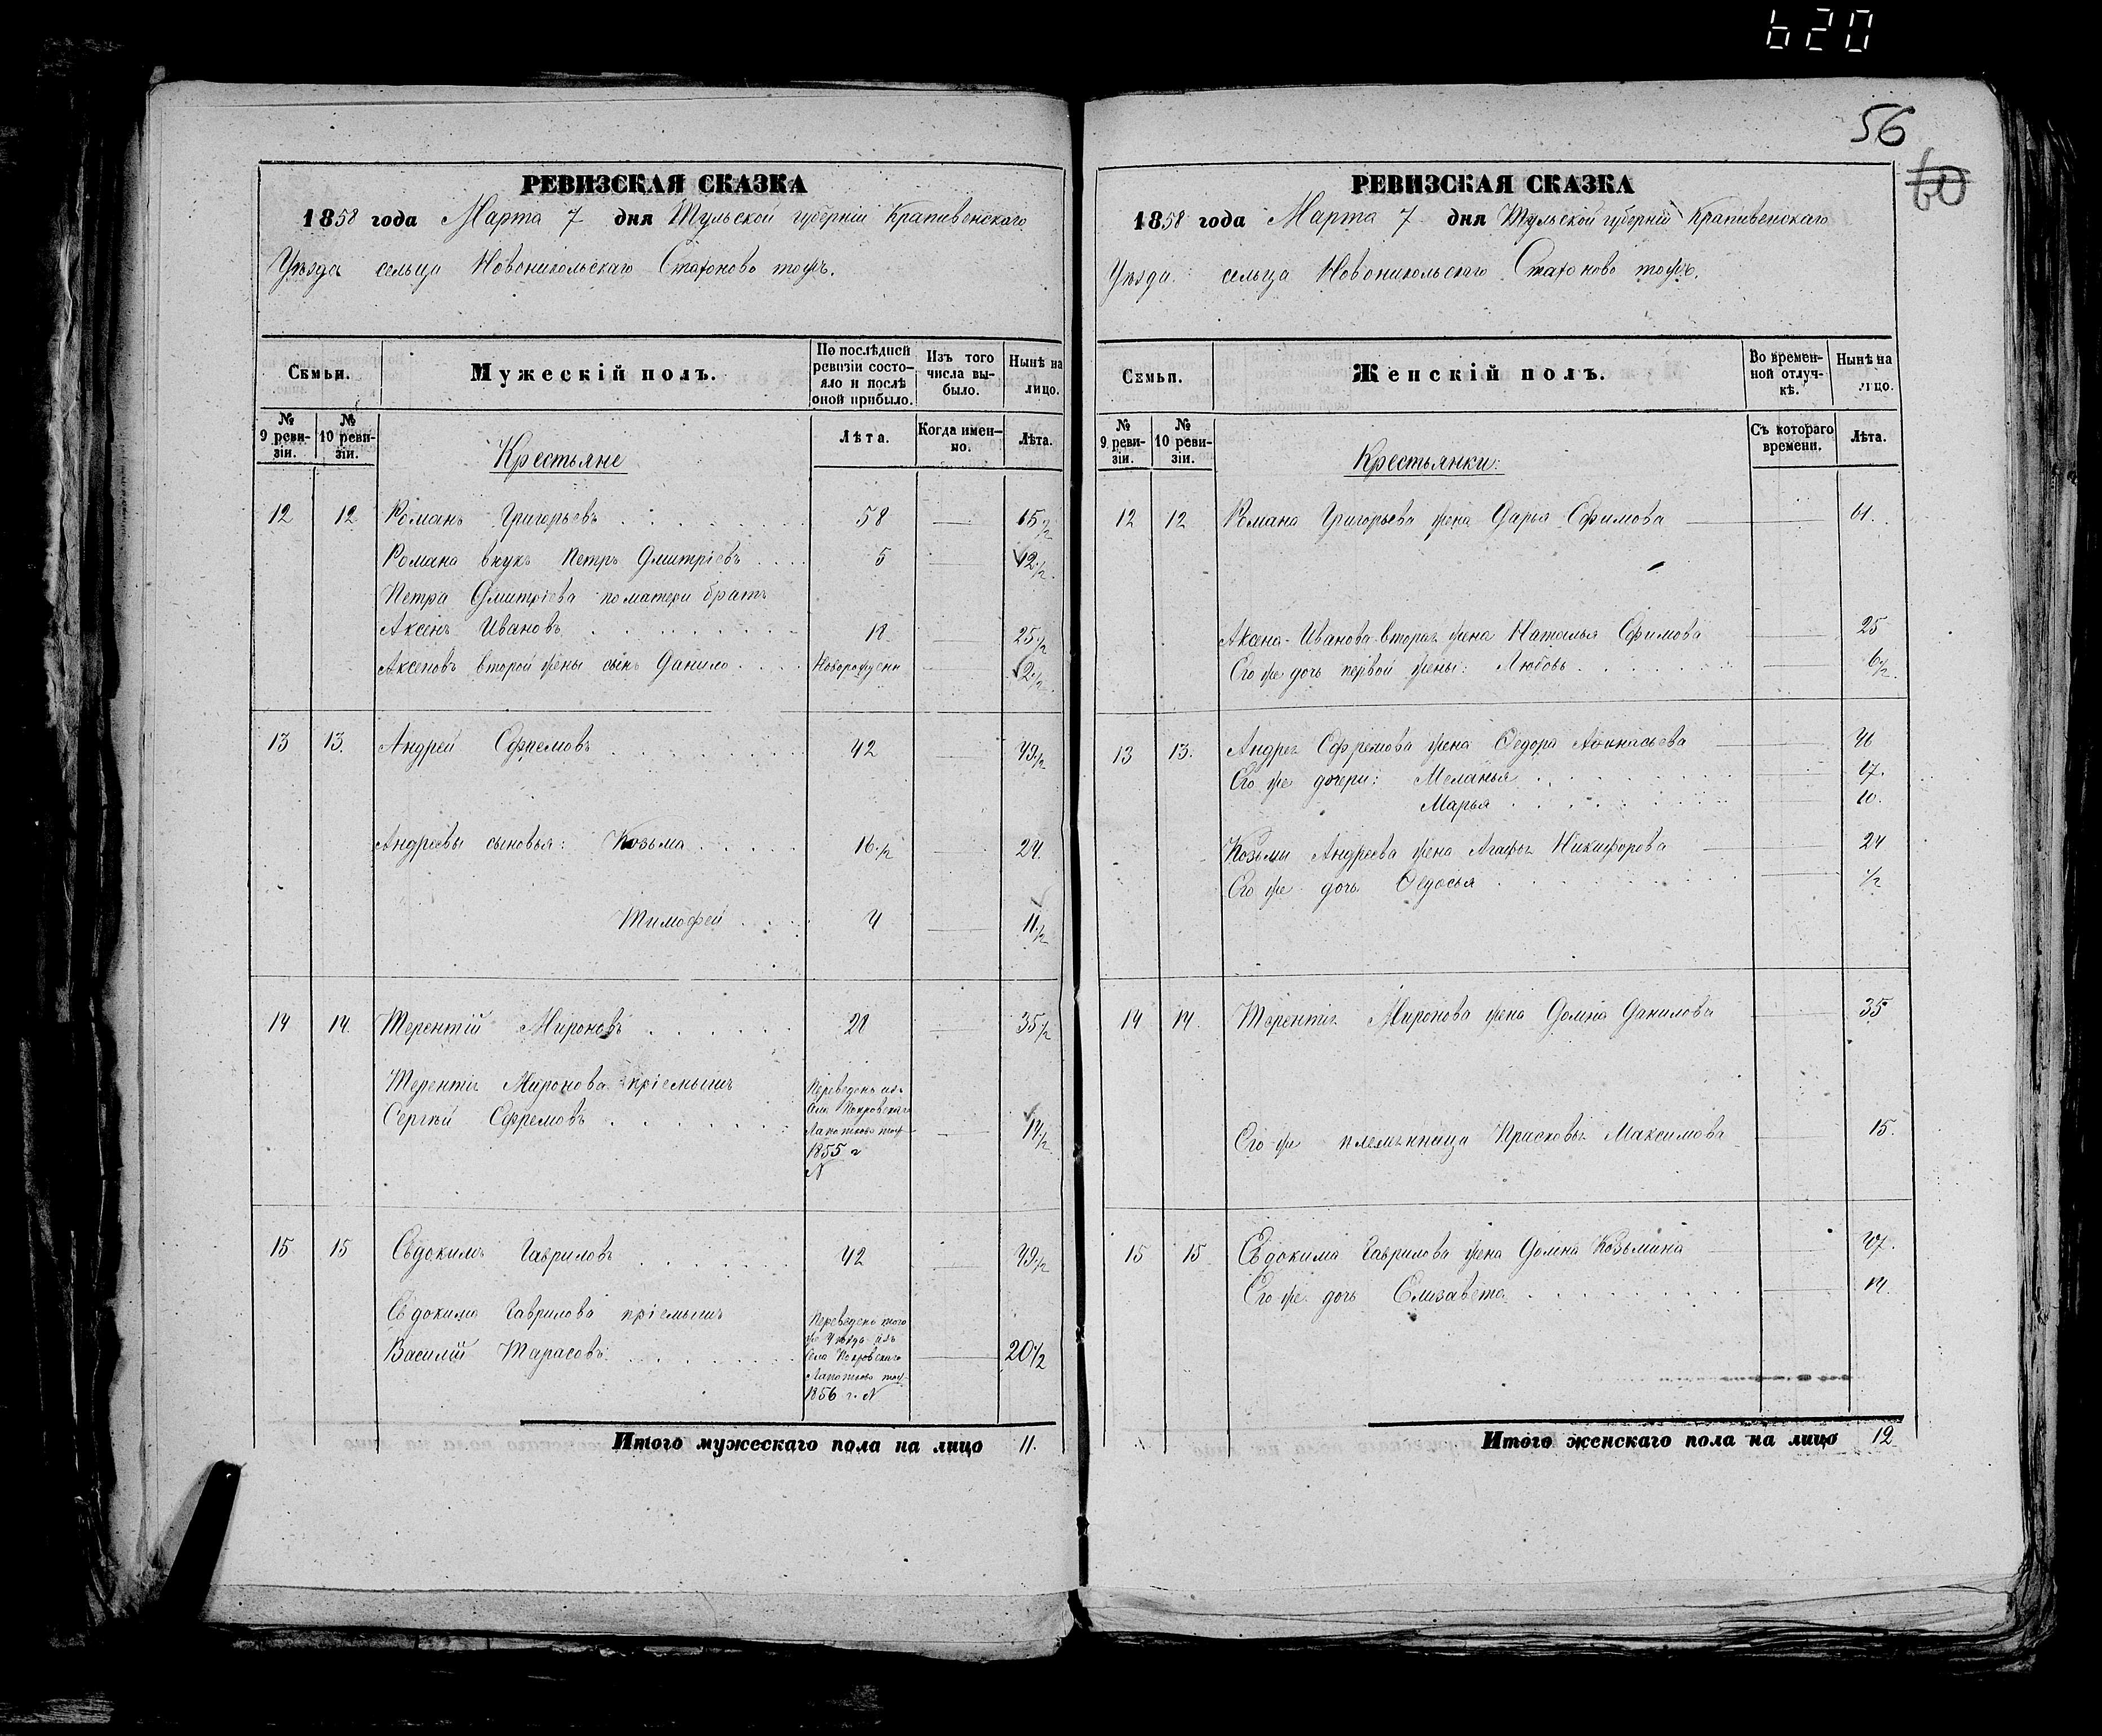 620
56
60
РЕВИЗСКАЯ СКАЗКА
1858 года Марта 7 дня Тульской губерніи Крапивенскаго
Уѣзда сельца Новоникольскаго Стахоново тожъ.
Семьи.
Мужескій полъ.
По послѣдней ревизіи состояло и послѣ оной прибыло.
Изъ того числа выбыло.
Нынѣ на лицо.
№ 9 ревизіи.
№ 10 ревизіи.
Крестьяне
Лѣта.
Когда именно.
Лѣта.
12 12 Романъ Григорьевъ 58 — 65 1/2
Романа внукъ Петръ Дмитріевъ 5 — 12 1/2.
Петра Дмитріева по матери братъ
Аксенъ Ивановъ 18 — 25 1/2
Аксеновъ второй жены сынъ Данило Новорожденн — 2 1/2.
13 13. Андрей Ефремовъ 42 — 49 1/2
Андреевы сыновья: Козьма 16 1/2 — 24.
Тимофей 4 — 11 1/2
14 14. Терентій Мироновъ 28 — 35 1/2
Терентія Миронова пріемышъ
Сергѣй Ефремовъ
Переведенъ изъ
Села Покровскаго
Лапотково тож
1855 г
N
— 14 1/2
15 15 Евдокимъ Гавриловъ 42 — 49 1/2
Евдокима Гаврилова пріемышъ
Василій Тарасовъ
Переведенъ того
же Уѣзда изъ
Села Покровскаго
Лапотково тож
1856 г. N
— 20 1/2
Итого мужескаго пола на лицо 11.
РЕВИЗСКАЯ СКАЗКА
1858 года Марта 7 дня Тульской губерніи Крапивенскаго
Уѣзда сельца Новоникольскаго Стахоново тожъ.
Семьи.
Женскій полъ.
Во временной отлучкѣ.
Нынѣ на лицо.
№ 9 ревизіи.
№ 10 ревизіи.
Крестьянки:
Съ котораго времени.
Лѣта.
12 12 Романа Григорьева жена Дарья Ефимова — 61.
Аксена Иванова вторая жена Наталья Ефимова — 25
Его же дочь первой жены: Любовь — 6 1/2.
13 13. Андрея Ефремова жена Федора Афонасьева — 46
Его же дочери: Меланья — 17.
Марья — 10.
Козьмы Андреева жена Агафья Никифорова — 24
Его же дочь Федосья — 1/2
14 14. Терентія Миронова жена Домна Данилова — 35
Его же племянница Прасковья Максимова — 15.
15 15 Евдокима Гаврилова жена Домна Козьмина — 47.
Его же дочь Елизавета — 14.
Итого женскаго пола на лицо 12